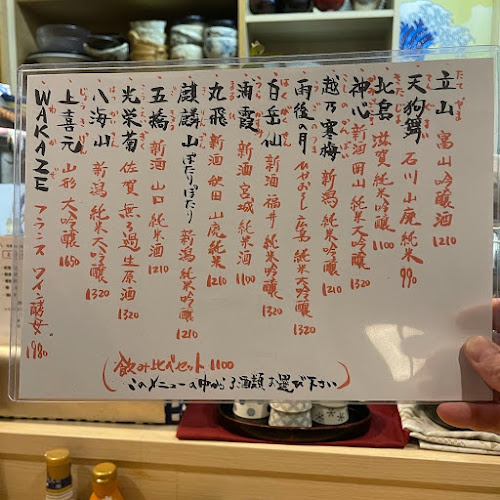 立山 富山 吟醸酒 1210
天狗舞 石川 山廃 純米 990
北島 滋賀 純米吟醸 1100
神心 新酒 岡山 純米大吟醸 1320
越乃寒梅 新潟 純米吟醸 1210
雨後の月 ひやおろし 広島 純米大吟醸 1320
白岳仙 新酒 福井 純米吟醸 1210
浦霞 新酒 宮城 純米酒 1100
丸飛 新酒 秋田 山廃 純米 1210
麒麟山 ぽたりぽたり 新潟 純米吟醸 1210
五橋 新酒 山口 純米酒 1210
光栄菊 佐賀 無ろ過生原酒 1320
八海山 新潟 純米大吟醸 1320
上喜元 山形 大吟醸 1650
WAKAZE フランス ワイン酵母 1980
(飲み比べセット 1100
このメニューの中から3種類お選び下さい)